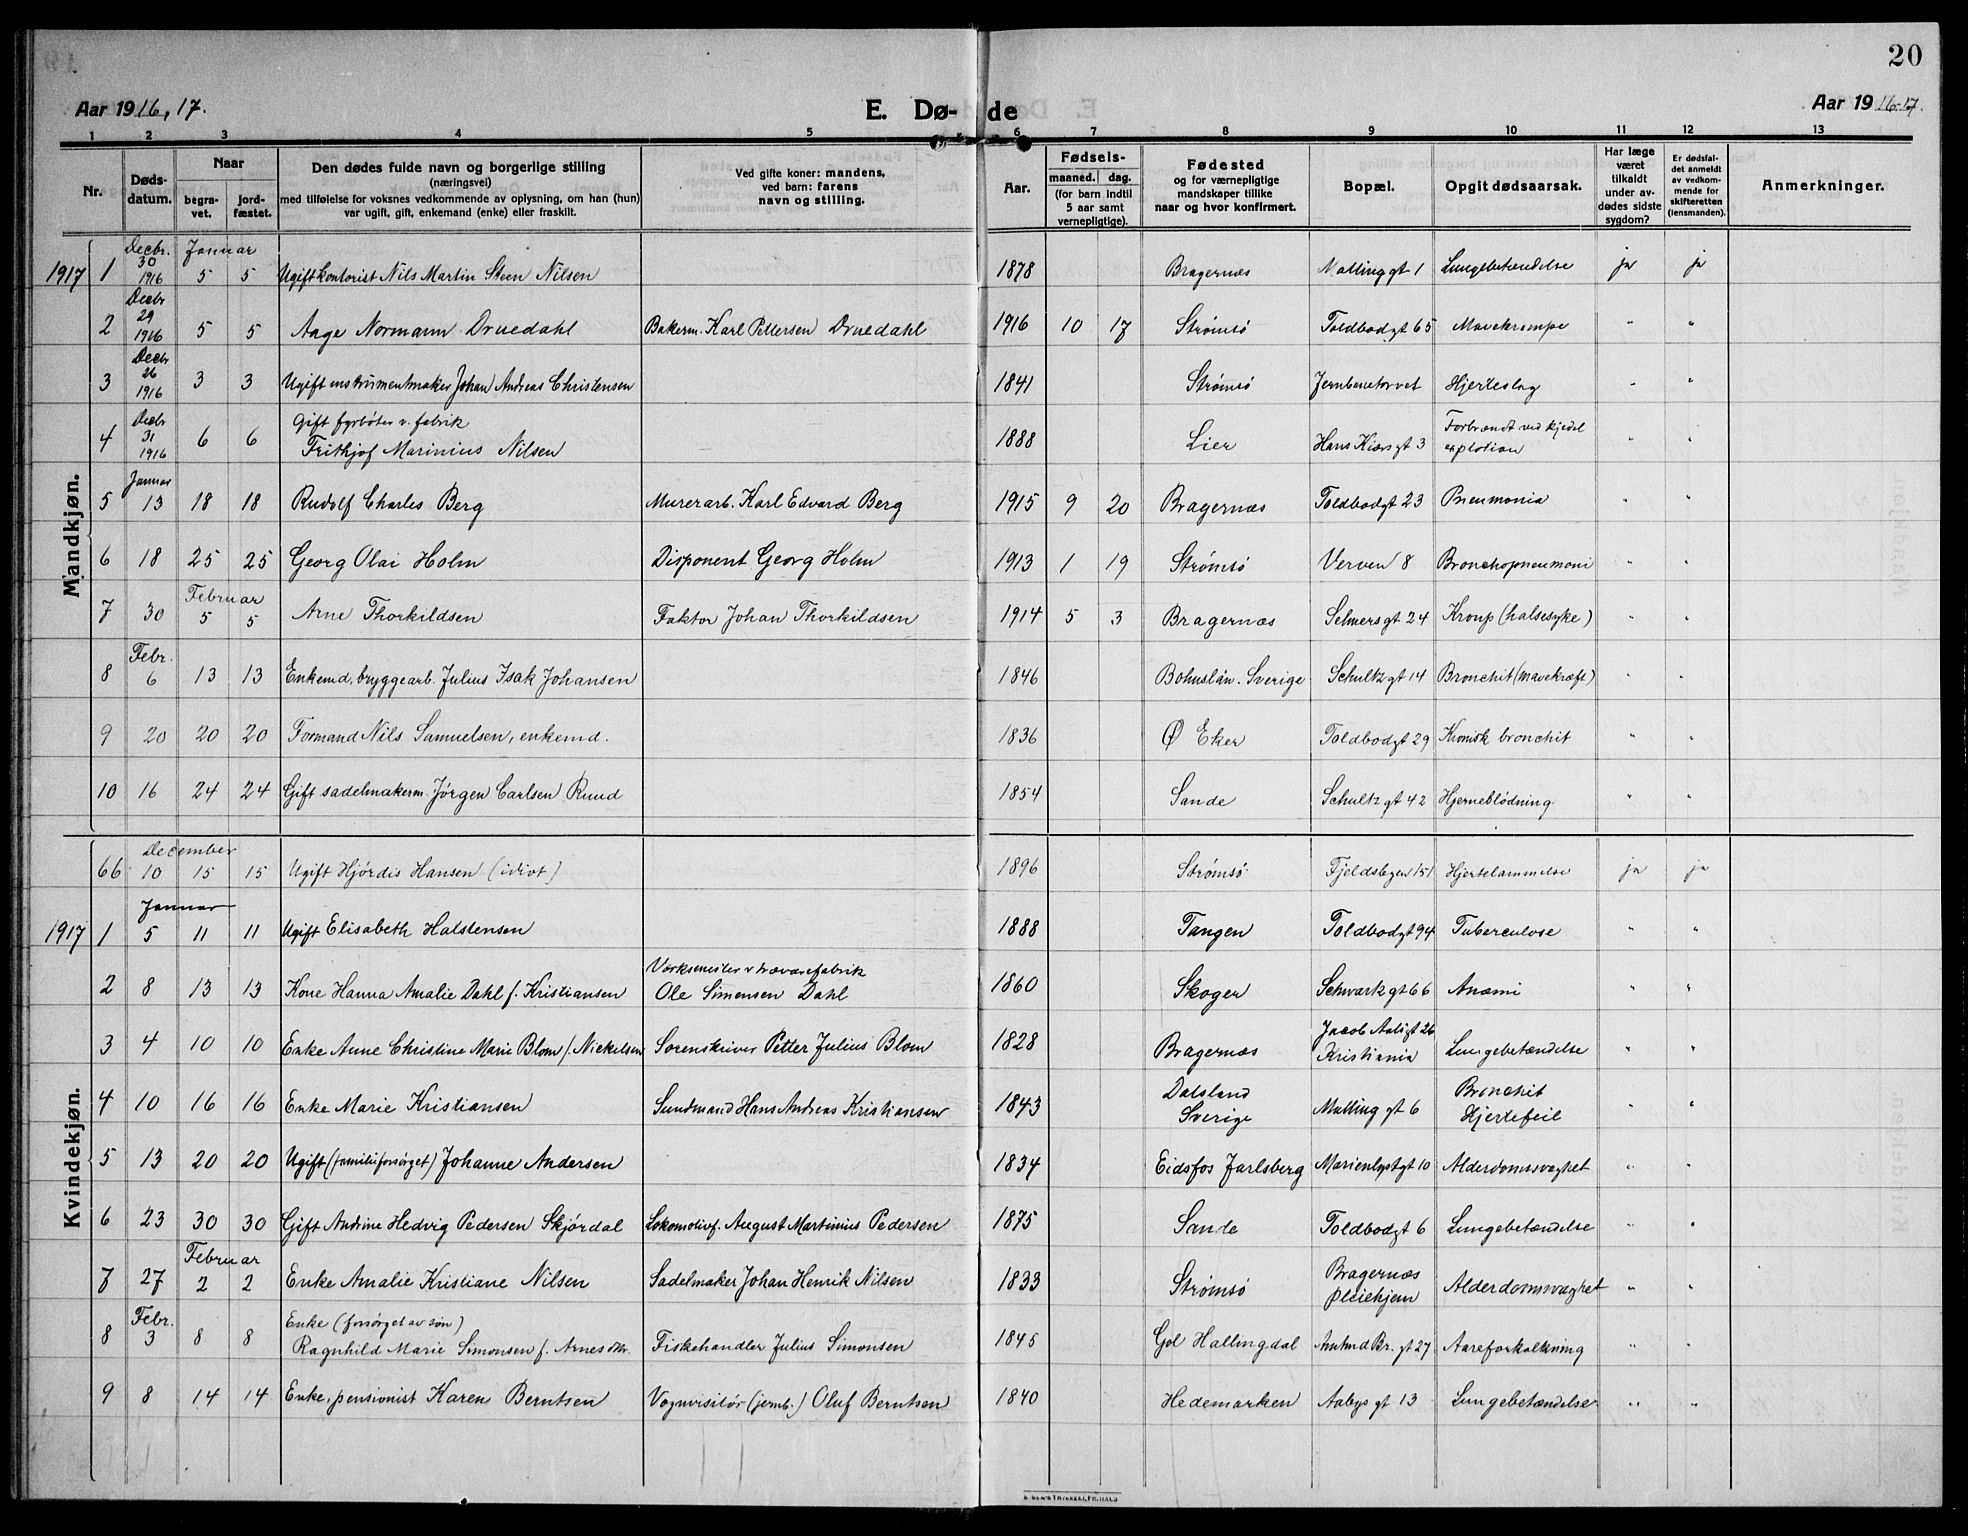 20
Aar 1916, 17.
E. Dø- de
Aar 1916-17.
1 2 3 4 5 6 7 8 9 10 11 12 13
Nr.
Døds-
datum.
Naar
begra-
vet.
jord-
fæstet.
Den dødes fulde navn og borgerlige stilling
(næringsvei)
med tilføielse for voksnes vedkommende av oplysning, om han (hun)
var ugift, gift, enkemand (enke) eller fraskilt.
Ved gifte koner: mandens,
ved barn: farens
navn og stilling.
Aar.
Fødsels-
maaned. dag.
(for barn indtil
5 aar samt
vernepligtige).
Fødested
og for værnepligtige
mandskaper tillike
naar og hvor konfirmert.
Bopæl.
Opgit dødsaarsak.
Har læge
været
tilkaldt
under av-
dødes sidste
sygdom?
Er dødsfal-
det anmeldt
av vedkom-
mende for
skifteretten
(lensmanden).
Anmerkninger.
Mandkjøn.
Decbr. Januar
1917 1 30 1916 5 5 Ugift kontorist Nils Martin Steen Nilsen 1878 Bragernæs Malling gt 1 Lungebetændelse ja ja
2 Decbr 29 1916 5 5 Aage Normann Druedahl Bakerm. Karl Pettersen Druedahl 1916 10 17 Strømsö Toldbodgt 65 Mavekrampe " "
3 Decbr 26 1916 3 3 Ugift instrumentmaker Johan Andreas Christensen 1841 Strømsö Jernbanetorvet Hjerteslag " "
4 Decbr 31 1916 6 6 Gift fyrbøter v. fabrik
Frithjof Marinius Nilsen 1888 Lier Hans Kiærs gt 3 Forbrændt ved kjedel
explotion " "
5 Januar 13 18 18 Rudolf Charles Berg Murerarb. Karl Edvard Berg 1915 9 20 Bragernæs Toldbodgt 23 Pneumonia " "
6 18 25 25 Georg Olai Holm Disponent Georg Holm 1913 1 19 Strømsö Verven 8 Bronchopneumoni " "
Februar
7 30 5 5 Arne Thorkildsen Faktor Johan Thorkildsen 1914 5 3 Bragernæs Selmers gt 24 Kroup (halsesyke) " "
8 Febr. 6 13 13 Enkemd, bryggearb. Julius Isak Johansen 1846 Bohuslän. Sverige Schultz gt 14 Bronchit (mavekræft) " "
9 20 20 20 Formand Nils Samuelsen, enkemd. 1836 Ø Eker Toldbodgt 29 Kronisk bronchit " "
10 16 24 24 Gift sadelmakerm. Jørgen Carlsen Ruud 1854 Sande Schultz gt 42 Hjerneblödning " "
Kvindekjøn.
December
66 10 15 15 Ugift Hjørdis Hansen (idiot) 1896 Strømsö Hjertelammelse ja ja
Januar
1917 1 5 11 11 Ugift Elisabeth Halstensen 1888 Tangen Toldbodgt 94 Tuberculose " "
2 8 13 13 Kone Hanna Amalie Dahl f. Kristiansen Værksmester v trævarefabrik
Ole Simensen Dahl 1860 Skoger Schwartz gt 66 Anæmi " "
3 4 10 10 Enke Anne Christine Marie Blom f. Nickelsen Sorenskriver Petter Julius Blom 1828 Bragernæs Jacob Aalsgt 26
Kristiania Lungebetændelse " "
4 10 16 16 Enke Marie Kristiansen Sundmand Hans Andreas Kristiansen 1843 Dalsland
Sverige Malling gt 6 Bronchit
Hjertefeil " "
5 13 20 20 Ugift (familieforsørget) Johanne Andersen 1834 Eidsfos Jarlsberg Marienlystgt 10 Alderdomssvaghet " "
6 23 30 30 Gift Andrine Hedvig Pedersen Skjördal Lokomotivf. August Martinius Pedersen 1875 Sande Toldbodgt 6 Lungebetændelse " "
Februar
7 27 2 2 Enke Amalie Kristiane Nilsen Sadelmaker Johan Henrik Nilsen 1833 Strømsö Bragernæs
Pleiehjem Alderdomssvaghet " "
8 Febr. 3 8 8 Enke (forsørget av søn)
Ragnhild Marie Simonsen f. Arnesdtr. Fiskehandler Julius Simonsen 1845 Gol Hallingdal Amtmd Br. gt 27 Aareforkalkning " "
9 8 14 14 Enke, pensionist Karen Berntsen Vognvisitør (jernb.) Oluf Berntsen 1840 Hedemarken Aabys gt 13 Lungebetændelse " "